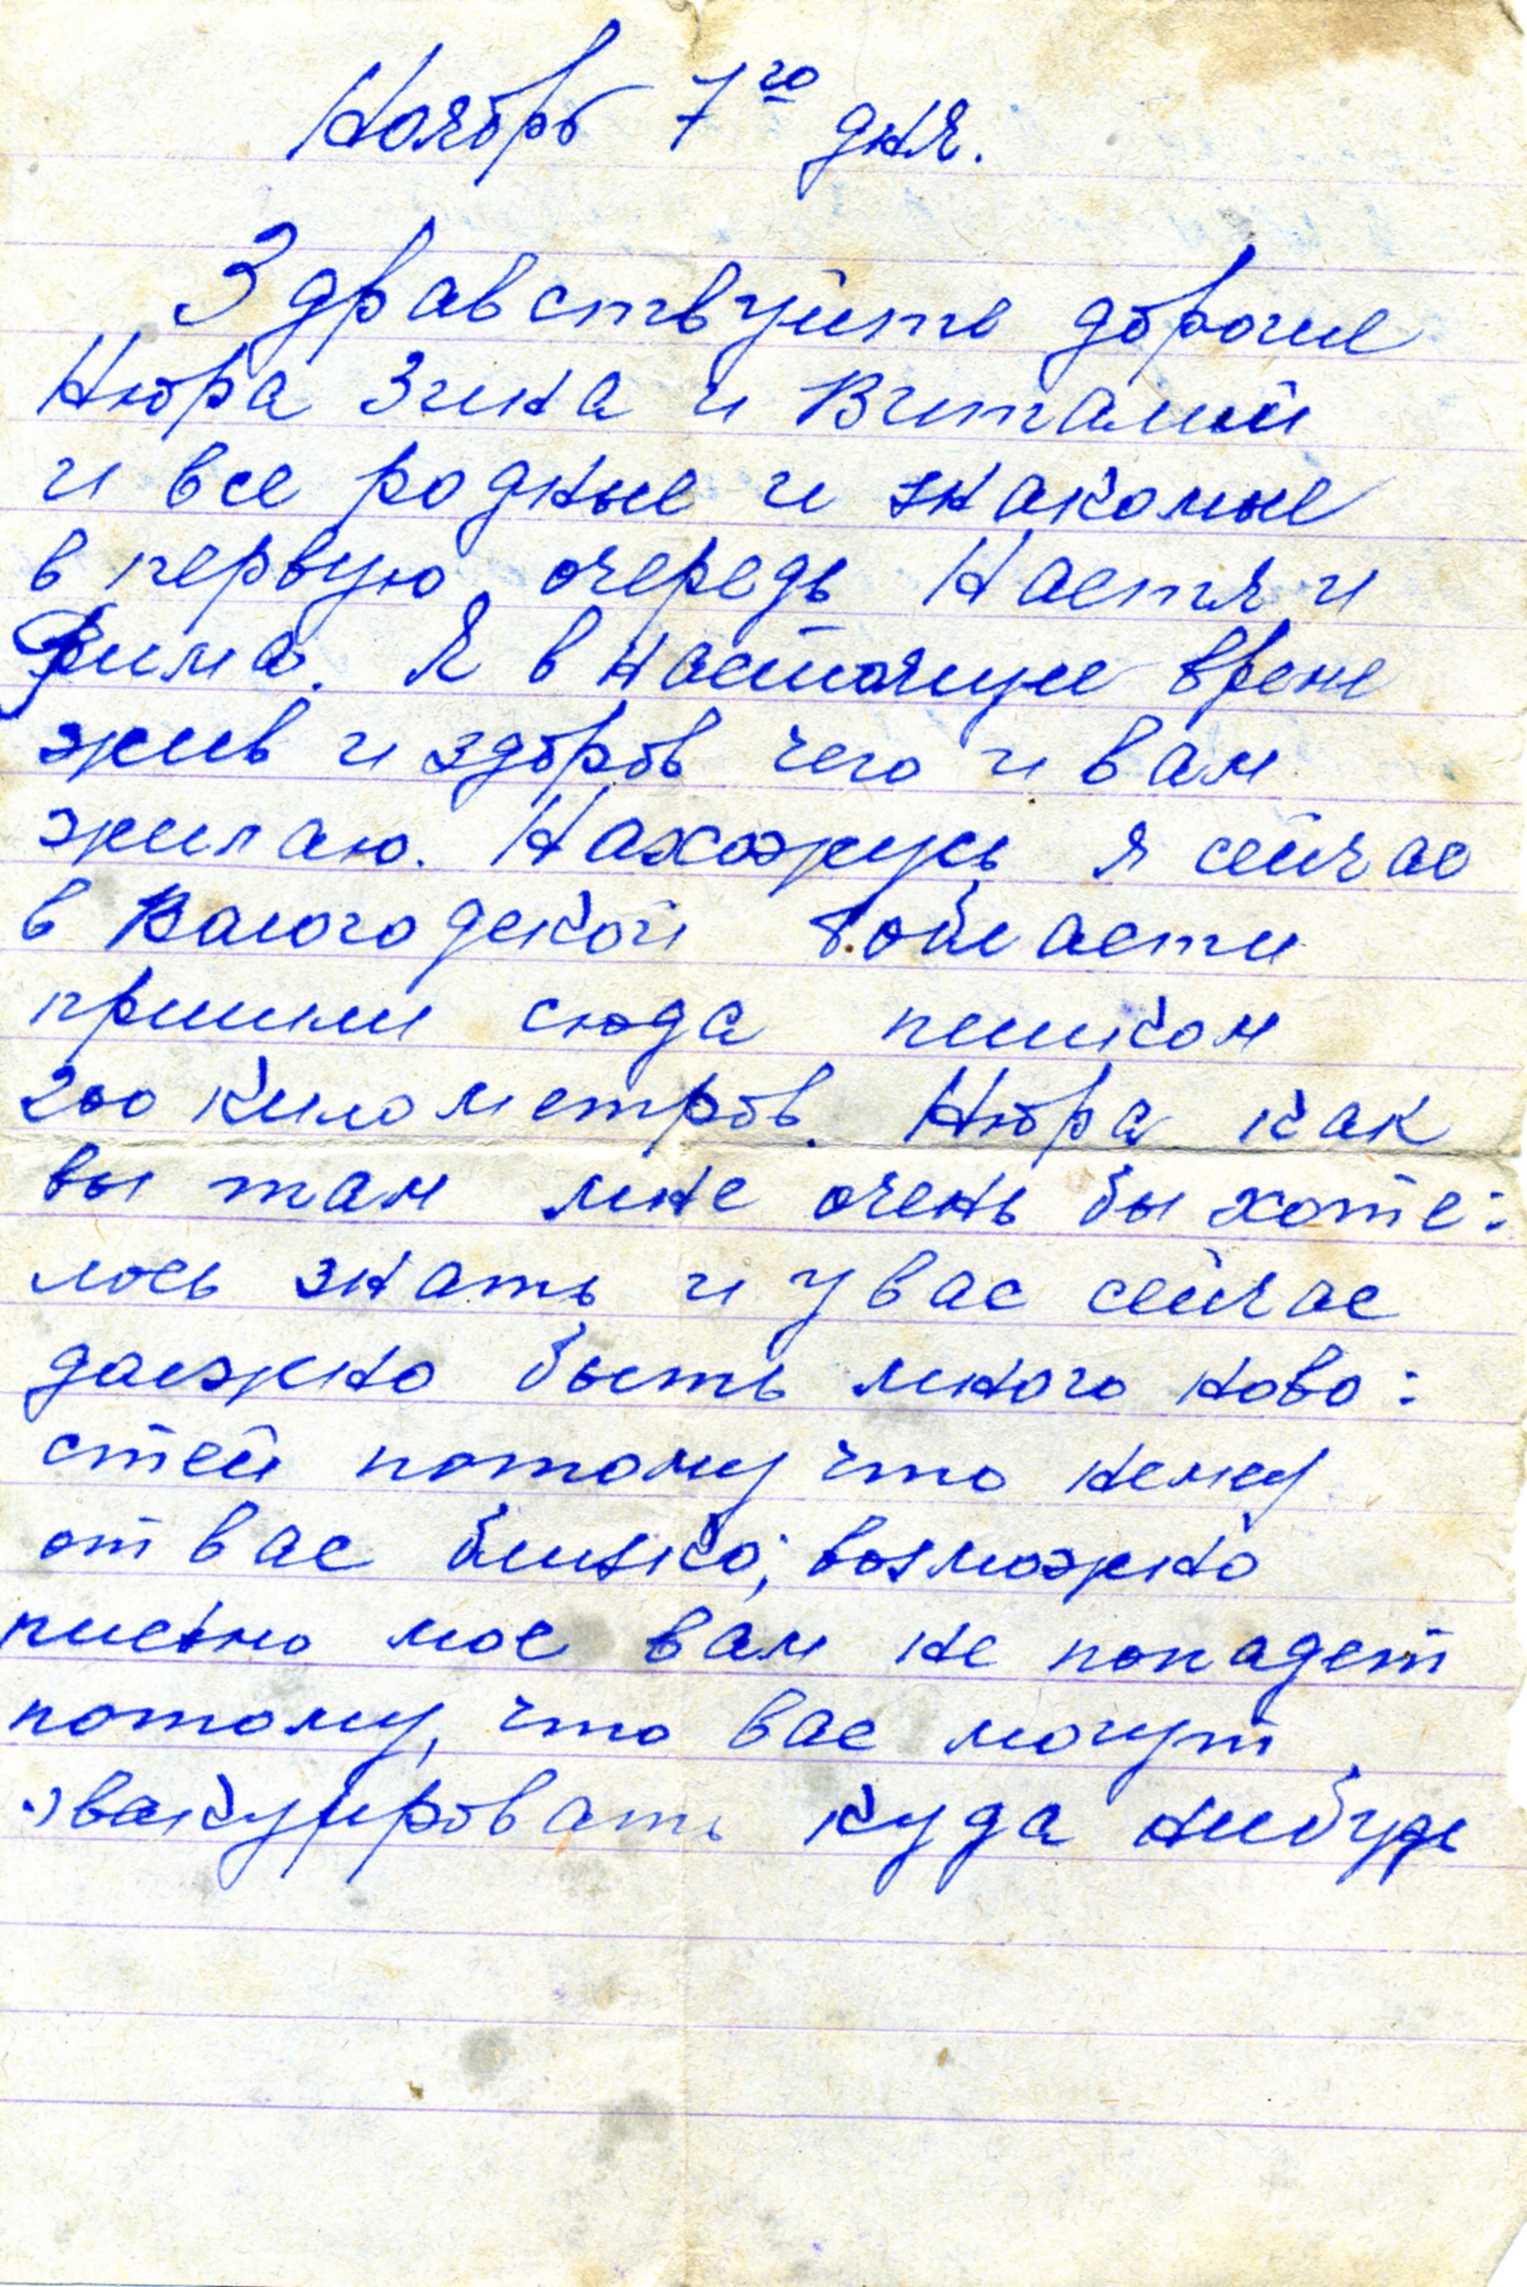 Ноябрь 7го дня.
Здравствуйте дорогие
Нюра Зина и Виталий
и все родные и знакомые
в первую очередь Настя и
Фима. Я в настоящие время
жив и здоров чего и вам
жилаю. Нахожусь я сейчас
в Валогодской области
пришли сюда пешком
200 километров. Нюра как
вы там мне очень бы хоте:
лось знать и у вас сейчас
далжно быть много ново:
стей потому что немец
от вас близко, возможно
письмо мое вам не попадет
потому, что вас могут
эвакуировать куда нибудь